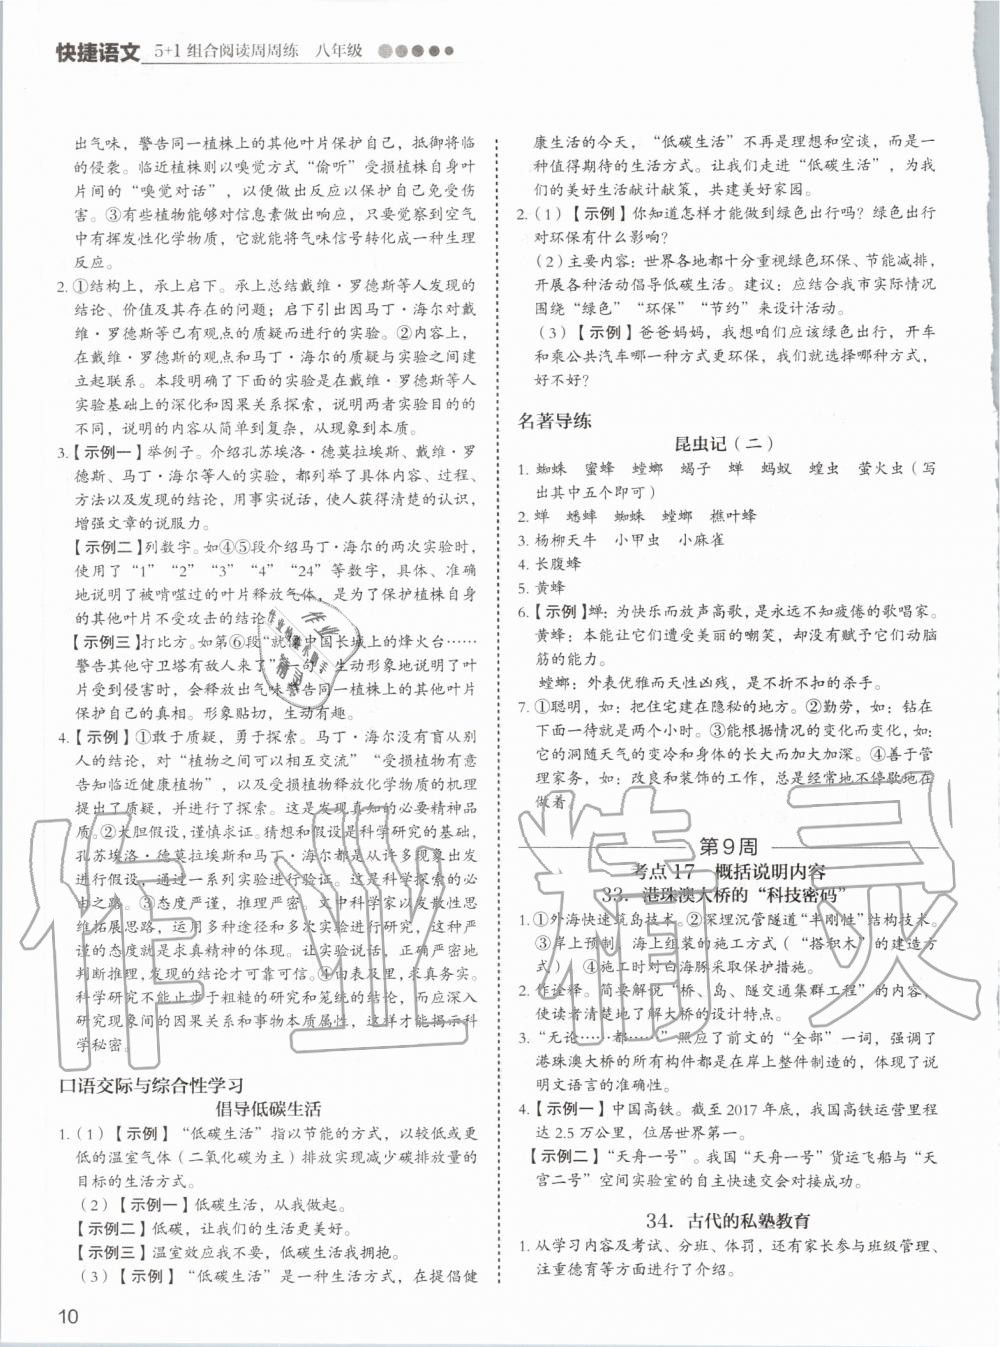 快捷语文 5+1组合阅读周周练 八年级
出气味，警告同一植株上的其他叶片保护自己，抵御将临
的侵袭。临近植株则以嗅觉方式“偷听”受损植株自身叶
片间的“嗅觉对话”，以便做出反应以保护自己免受伤
害。③有些植物能够对信息素做出响应，只要觉察到空气
中有挥发性化学物质，它就能将气味信号转化成一种生理
反应。
2. ①结构上，承上启下。承上总结戴维·罗德斯等人发现的
结论、价值及其存在的问题；启下引出因马丁·海尔对戴
维·罗德斯等已有观点的质疑而进行的实验。②内容上，
在戴维·罗德斯的观点和马丁·海尔的质疑与实验之间建
立起联系。本段明确了下面的实验是在戴维·罗德斯等人
实验基础上的深化和因果关系探索，说明两者实验目的的
不同，说明的内容从简单到复杂，从现象到本质。
3.【示例一】举例子。介绍孔苏埃洛·德莫拉埃斯、戴维·罗
德斯、马丁·海尔等人的实验，都列举了具体内容、过程、
方法以及发现的结论，用事实说话，使人获得清楚的认识，
增强文章的说服力。
【示例二】列数字。如④⑤段介绍马丁·海尔的两次实验时，
使用了“1”“2”“3”“4”“24”等数字，具体、准确
地说明了被啃噬过的叶片释放气体，是为了保护植株自身
的其他叶片不受攻击的结论。
【示例三】打比方。如第⑥段“就像中国长城上的烽火台……
警告其他守卫塔有敌人来了”一句，生动形象地说明了叶
片受到侵害时，会释放出气味警告同一植株上的其他叶片
保护自己的真相。形象贴切，生动有趣。
4.【示例】①敢于质疑，勇于探索。马丁·海尔没有盲从别
人的结论，对“植物之间可以相互交流”“受损植物有意
告知临近健康植物”，以及受损植物释放化学物质的机理
提出了质疑，并进行了探索。这是发现真知的必要精神品
质。②大胆假设，谨慎求证。猜想和假设是科学研究的基础，
孔苏埃洛·德莫拉埃斯和马丁·海尔都是从许多现象出发
进行假设，通过一系列实验进行验证。这是科学探索的必
经过程。③态度严谨，推理严密。文中科学家以发散性思
维拓展思路，运用多种途径和多次实验进行研究，这种严
谨的态度就是求真精神的体现。让实验说话，正确严密地
判断推理，发现的结论才可靠可信。④由表及里，求真务实。
科学研究不能止步于粗糙的研究和笼统的结论，而应深入
研究现象间的因果关系和事物本质属性，这样才能揭示科
学秘密。
口语交际与综合性学习
倡导低碳生活
1.（1）【示例】“低碳生活”指以节能的方式，以较低或更
低的温室气体（二氧化碳为主）排放实现减少碳排放量的
目标的生活方式。
（2）【示例一】低碳生活，从我做起。
【示例二】低碳，让我们的生活更美好。
【示例三】温室效应我不要，低碳生活我拥抱。
（3）【示例】“低碳生活”是一种生活方式，在提倡健
康生活的今天，“低碳生活”不再是理想和空谈，而是一
种值得期待的生活方式。让我们走进“低碳生活”，为我
们的美好生活献计献策，共建美好家园。
2.（1）【示例】你知道怎样才能做到绿色出行吗？绿色出行
对环保有什么影响？
（2）主要内容：世界各地都十分重视绿色环保、节能减排，
开展各种活动倡导低碳生活。建议：应结合我市实际情况
围绕“绿色”“环保”“节约”来设计活动。
（3）【示例】爸爸妈妈，我想咱们应该绿色出行，开车
和乘公共汽车哪一种方式更环保，我们就选择哪种方式，
好不好？
名著导练
昆虫记（二）
1. 蜘蛛 蜜蜂 螳螂 蝎子 蝉 蚂蚁 蝗虫 萤火虫（写
出其中五个即可）
2. 蝉 蟋蟀 蜘蛛 螳螂 樵叶蜂
3. 杨柳天牛 小甲虫 小麻雀
4. 长腹蜂
5. 黄蜂
6.【示例】蝉：为快乐而放声高歌，是永远不知疲倦的歌唱家。
黄蜂：本能让它们遭受美丽的嘲笑，却没有赋予它们动脑
筋的能力。
螳螂：外表优雅而天性凶残，是不折不扣的杀手。
7. ①聪明，如：把住宅建在隐秘的地方。②勤劳，如：钻在
下面一待就是两个小时。③能根据情况的变化而变化，如：
它的洞随天气的变冷和身体的长大而加大加深。④善于管
理家务，如：改良和装饰的工作，总是经常地不停歇地在
做着。
第9周
考点17 概括说明内容
33. 港珠澳大桥的“科技密码”
1. ①外海快速筑岛技术。②深埋沉管隧道“半刚性”结构技术。
③岸上预制、海上组装的施工方式（“搭积木”的建造方
式）④施工时对白海豚采取保护措施。
2. 作诠释。简要解说“桥、岛、隧交通集群工程”的内容，
使读者清楚地了解大桥的设计特点。
3.“无论……都……”照应了前文的“全部”一词，强调了
港珠澳大桥的所有构件都是在岸上整件制造的，体现了说
明文语言的准确性。
4.【示例一】中国高铁。截至2017年底，我国高铁运营里程
达2.5万公里，位居世界第一。
【示例二】“天舟一号”。我国“天舟一号”货运飞船与“天
宫二号”空间实验室的自主快速交会对接成功。
34. 古代的私塾教育
1. 从学习内容及考试、分班、体罚，还有家长参与班级管理、
注重德育等方面进行了介绍。
10
作业精灵